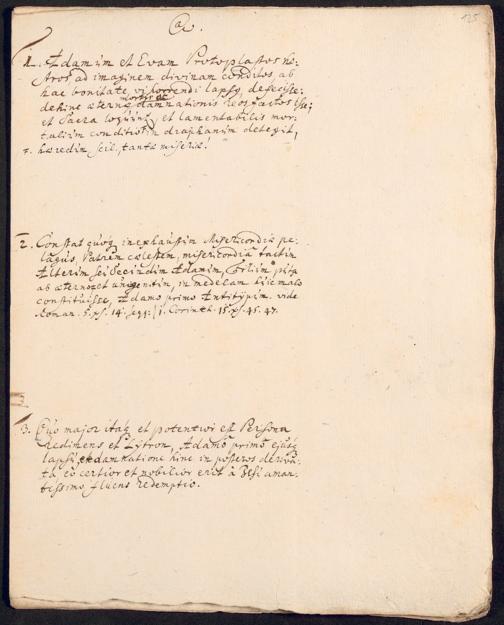 @.
125
1. Adamum et Evam Protoplastos no-
stros ad imaginem divinam conditos, ab
hac bonitate, vi horrendi lapsus, defecisse:
mortis et
dehinc æternæ damnationis reos factos esse;
et Sacra loquuntur, et lamentabilis mor-
talium conditio in detegit,
hæredum scil. tantæ miseriæ!
2. Constat quoq; inexhaustum Misericordiæ pe-
lagus, Patrem cœlestem, misericordia tactum
Alterum seu Secundum Adamum, Filium
ab æterno et unigenitum, in medelam huic malo
constituisse, Adamo primo Antitypum. vide
Roman. 5. vs. 14. seqq: 1. Corinth. 15. vs. 45. 47.
3. Quo major itaq; et potentior est Persona
redimens et Lytron, Adamo primo ejusq;
lapsu et damnatione hinc in posteros deriva-
ta, eo certior et nobilior erit à JEsu aman-
tissimo fluens redemptio.